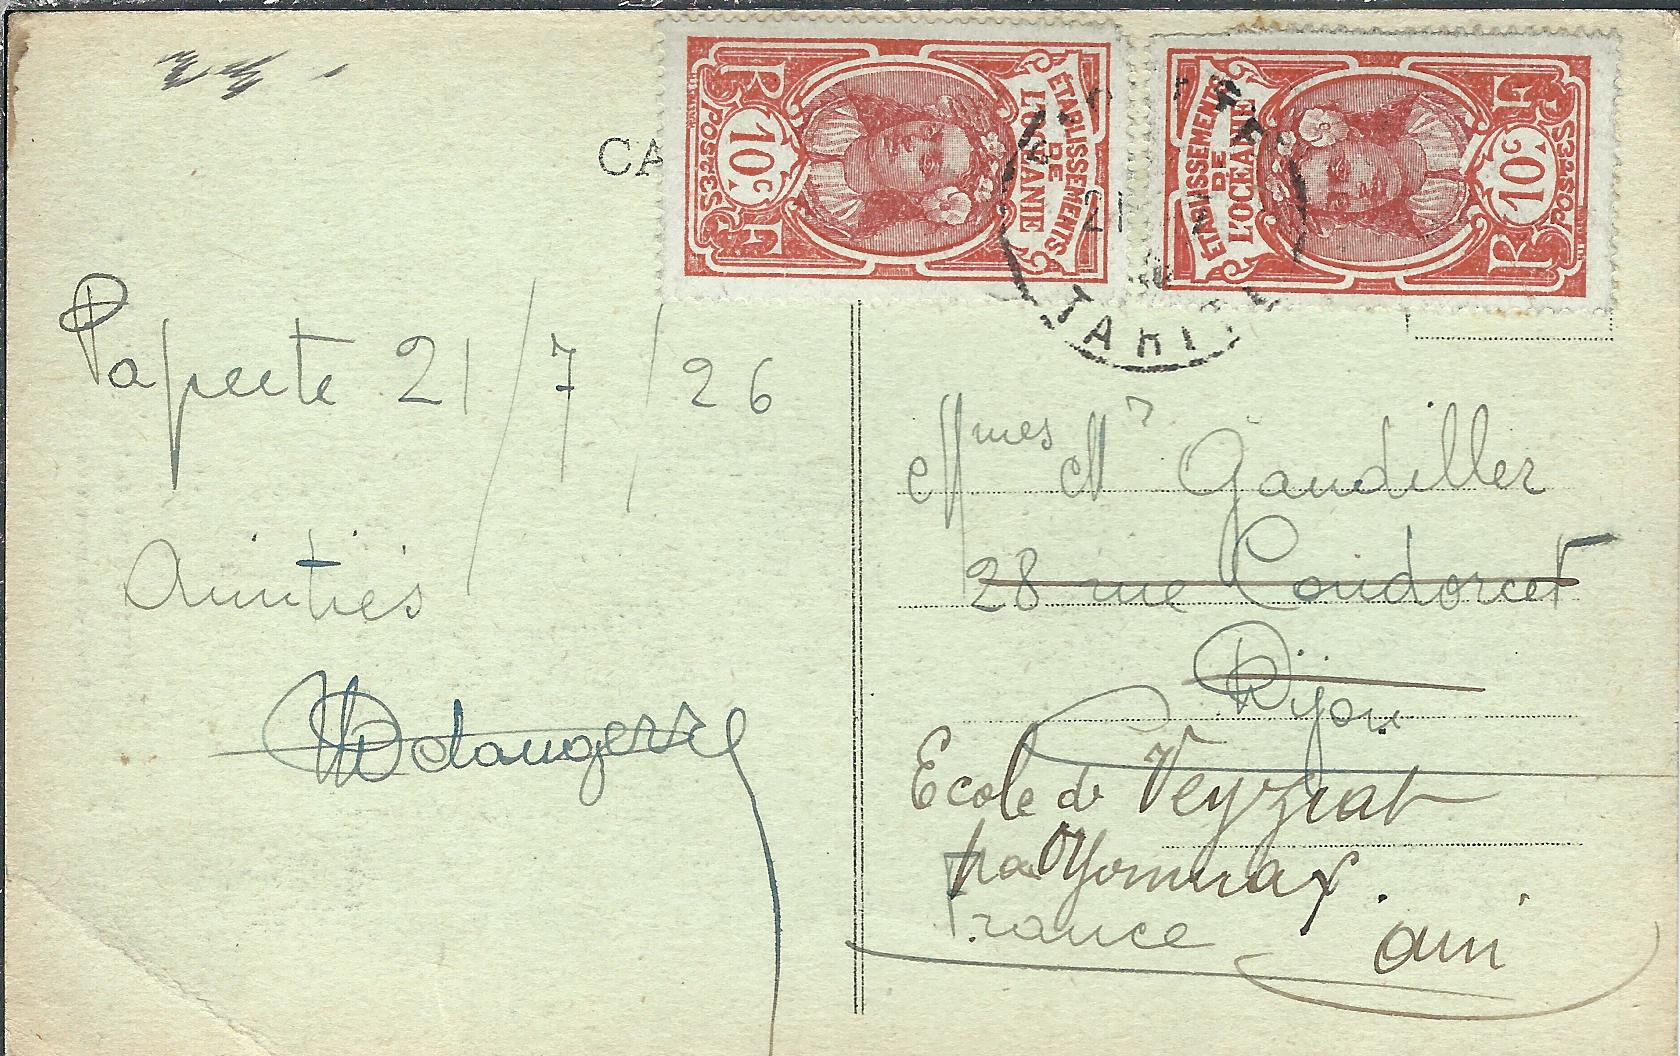 CA
10c
POSTES
RF
ÉTABLISSEMENTS
DE
L'OCÉANIE
ÉTABLISSEMENTS
DE
L'OCÉANIE
10c
POSTES
RF
21
TAHITI
Papeete 21/7/26
Amitiés
Mmes Mr Gaudiller
28 rue Condorcet
Dijon
Ecole de Veyziat
par Oyonnax.
France
Ain